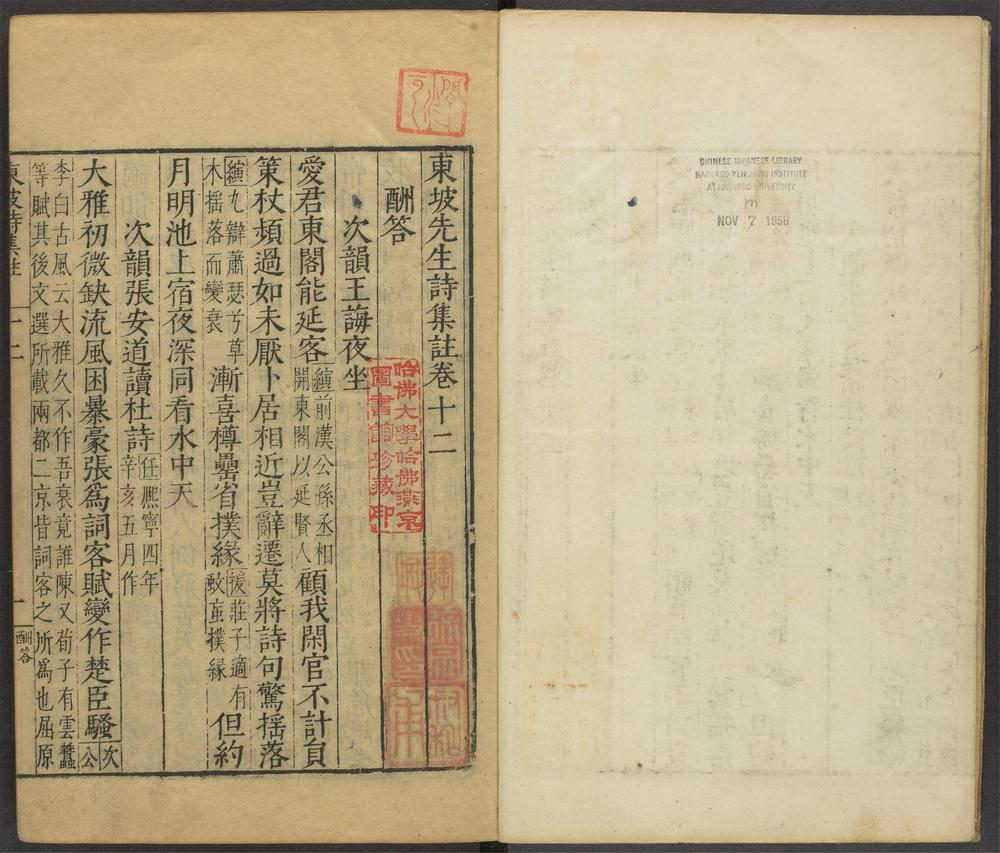 CHINESE-JAPANESE LIBRARY
HARVARD-YENCHING INSTITUTE
AT HARVARD UNIVERSITY
NOV 7 1958
東坡先生詩集註卷十二
酬答
次韻王誨夜坐
愛君東閣能延客縯前漢公孫丞相開東閣以延賢人顧我閑官不計員
策杖頻過如未厭卜居相近豈辭遷莫將詩句驚揺落
縯九辯蕭瑟兮草木揺落而變衰漸喜樽罍省撲緣援莊子適有蚊䖟撲縁但約
月明池上宿夜深同看水中天
次韻張安道讀杜詩任熈寧四年辛亥五月作
大雅初微缺流風困暴豪張爲詞客賦變作楚臣騷次公
李白古風云大雅久不作吾衰竟誰陳又荀子有雲蠶
等賦其後文選所載兩都二京皆詞客之所爲也屈原
東坡詩集註
十二
一
酬答
哈佛大學哈佛燕京
圖書館珍藏印